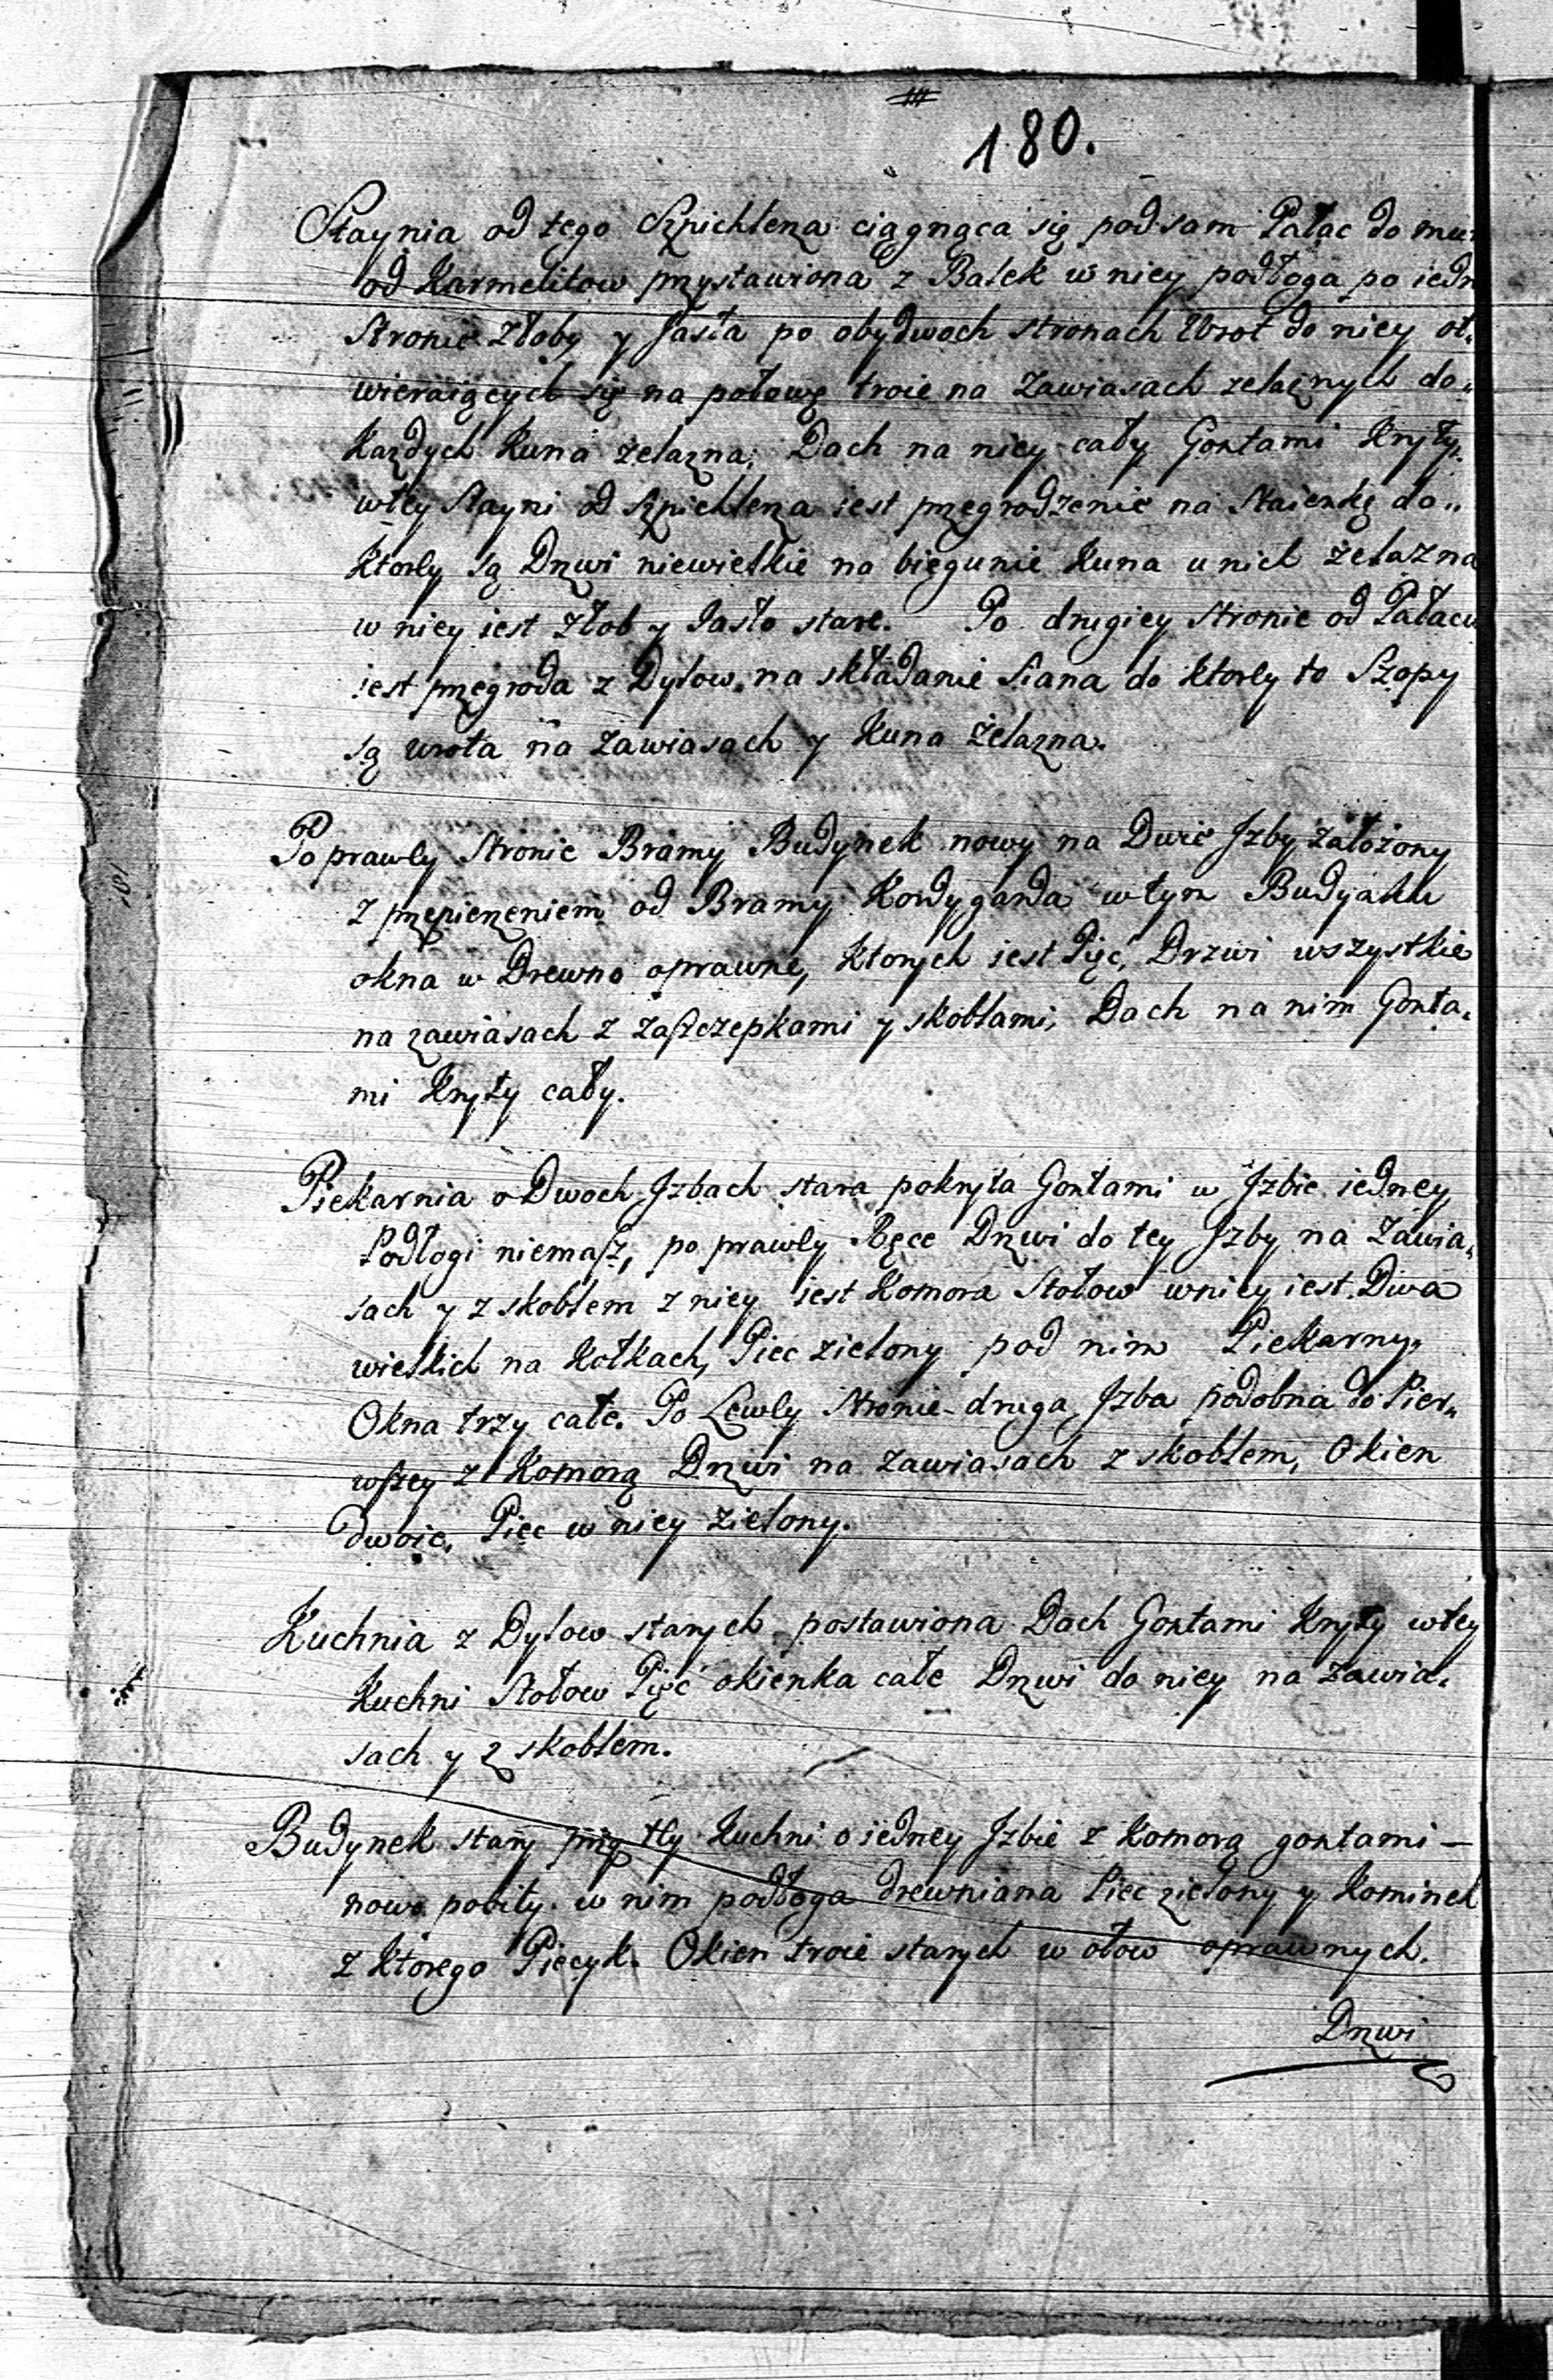 180.
Staynia od tego Szpichlerza ciągnąca się pod sam Pałac do mur
od Karmelitow przystawiona z Balek w niey podłoga po iedn
Stronie Złoby y Jasła po obydwoch stronach Wrot do niey ot„
wieraiących się na połowę troie na Zawiasach zelaznych do„
Kazdych Kuna żelazna, Dach na niey cały Gontami Kryty.
wtey Stayni od Szpichlerza iest przegrodzenie na Staienkę do„
Ktorey są Drzwi niewielkie na biegunie Kuna u nich żelazna
w niey iest Złob y Jasło stare. Po drugiey Stronie od Pałacu
iest przegroda z Dylow, na składanie Siana do Ktorey to Szopy
są wrota na zawiasach y Kuna Żelazna.
Po prawey Stronie Bramy Budynek nowy na Dwie Jzby założony
z przepierzeniem od Bramy Kordygarda wtym Budynku
okna w Drewno oprawne, Ktorych iest Pięć, Drzwi wszystkie
na zawiasach z zaszczepkami y skoblami, Dach na nim Gonta„
mi Kryty cały.
Piekarnia o Dwoch Jzbach stara pokryta Gontami w Jzbie iedney
Podłogi niemasz, po prawey Ręce Drzwi do tey Jzby na Zawia„
sach y z skoblem z niey iest Komora Stołow wniey iest Dwa
wielkich na Kołkach, Piec zielony pod nim Piekarny,
Okna trzy całe. Po Lewey Stronie druga Jzba podobna do Pier„
wszey z Komorą Drzwi na Zawiasach z skoblem, Okien
dwoie, Piec w niey zielony.
Kuchnia z Dylow starych postawiona Dach Gontami Kryty wtey
Kuchni Stołow Pięć okienka całe Drzwi do niey na zawia„
sach y z skoblem.
Budynek stary przy tey Kuchni o iedney Jzbie z Komorą gontami —
nowo pobity. w nim podłoga drewniana Piec zielony y Kominek
z Ktorego Piecyk. Okien troie starych w ołow oprawnych.
Drzwi